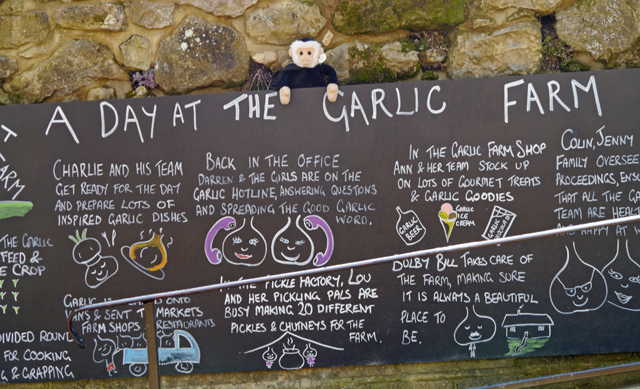 T A DAY AT THE GARLIC FARM
FARM
THE GARLIC
FEED &
E CROP
DIVIDED ROUND
FOR COOKING,
G & GRAPPING
CHARLIE AND HIS TEAM
GET READY FOR THE DAY
AND PREPARE LOTS OF
INSPIRED GARLIC DISHES
GARLIC IS
ONTO
VANS & SENT TO MARKETS
FARM SHOPS & RESTAURANTS
BACK IN THE OFFICE
DARREN & THE GIRLS ARE ON THE
GARLIC HOTLINE, ANSWERING QUESTIONS
AND SPREADING THE GOOD GARLIC
WORD.
IN THE PICKLE FACTORY, LOU
AND HER PICKLING PALS ARE
BUSY MAKING 20 DIFFERENT
PICKLES & CHUTNEYS FOR THE
FARM.
IN THE GARLIC FARM SHOP
ANN & HER TEAM STOCK UP
ON LOTS OF GOURMET TREATS
& GARLIC GOODIES
GARLIC BEER
GARLIC
ICE
CREAM
DULBY BILL TAKES CARE OF
THE FARM, MAKING SURE
IT IS ALWAYS A BEAUTIFUL
PLACE TO
BE.
COLIN, JENNY
FAMILY OVERSEE
PROCEEDINGS, ENSU
THAT ALL THE GA
TEAM ARE HEAL
AND HAPPY AT W